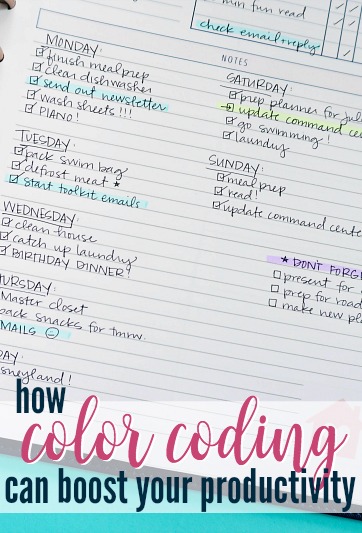 min fun read
check email+reply
MONDAY:
finish meal prep
clean dishwasher
send out newsletter
wash sheets!!!
PIANO!
TUESDAY:
pack swim bag
defrost meat ★
start toolkit emails
WEDNESDAY:
clean house
catch up laundry
BIRTHDAY DINNER!
URSDAY:
Master closet
pack snacks for tmrw.
MAILS ☺
DAY:
sneyland!
NOTES
SATURDAY:
prep planner for jul
update command ce
go swimming!
laundry
SUNDAY:
meal prep
read!
update command cente
★ DONT FORG
present for
prep for road
make new pl
how
color coding
can boost your productivity